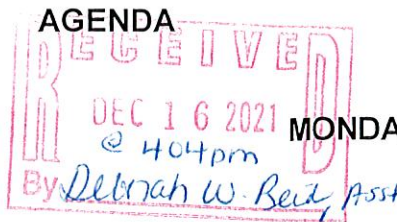 AGENDA
RECEIVED
DEC 16 2021
MONDA
@ 404pm
By Deborah W. Beid, Asst